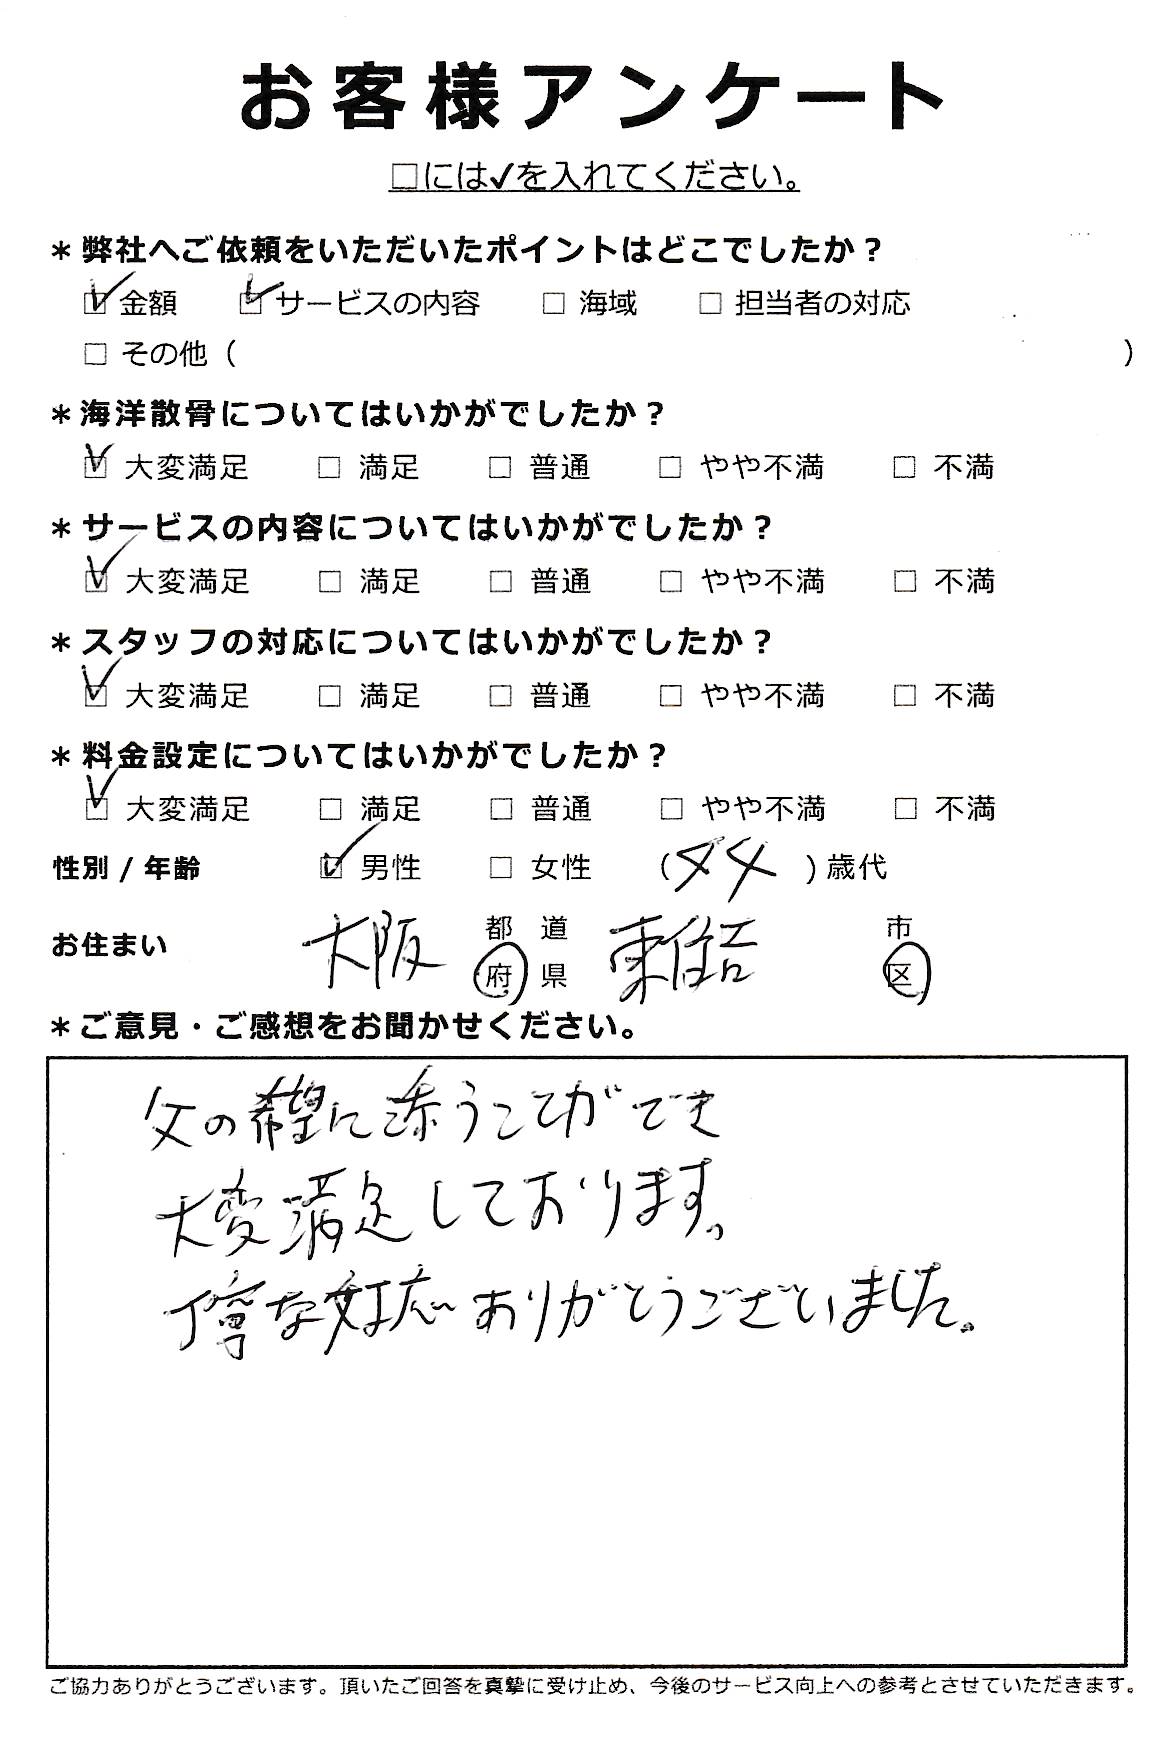 お客様アンケート
□には✓を入れてください。
＊弊社へご依頼をいただいたポイントはどこでしたか？
☑ 金額 ☑ サービスの内容 □ 海域 □ 担当者の対応
□ その他（ ）
＊海洋散骨についてはいかがでしたか？
☑ 大変満足 □ 満足 □ 普通 □ やや不満 □ 不満
＊サービスの内容についてはいかがでしたか？
☑ 大変満足 □ 満足 □ 普通 □ やや不満 □ 不満
＊スタッフの対応についてはいかがでしたか？
☑ 大変満足 □ 満足 □ 普通 □ やや不満 □ 不満
＊料金設定についてはいかがでしたか？
☑ 大変満足 □ 満足 □ 普通 □ やや不満 □ 不満
性別 / 年齢 ☑ 男性 □ 女性 （44）歳代
お住まい 大阪 都 道 府 県 東住吉 市 区
＊ご意見・ご感想をお聞かせください。
父の希望に添うことができ
大変満足しております。
丁寧な対応ありがとうございました。
ご協力ありがとうございます。頂いたご回答を真摯に受け止め、今後のサービス向上への参考とさせていただきます。